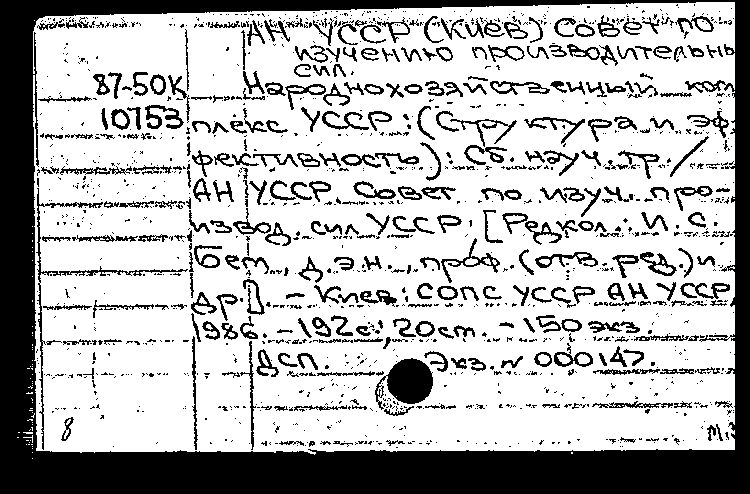 АН УССР (Киев) Совет по
изучению производительны
сил.
87-50К Народнохозяйственный ком
10753 плекс УССР: (Структура и эф-
фективность): Сб. науч. тр. /
АН УССР. Совет по изуч. про-
извод. сил УССР; [Редкол.: И. С.
Бем, д.э.н., проф. (отв. ред.) и
др.]. - Киев: СОПС УССР АН УССР,
1986. - 192 с.; 20 см. - 150 экз.
ДСП. Экз. № 000147.
8